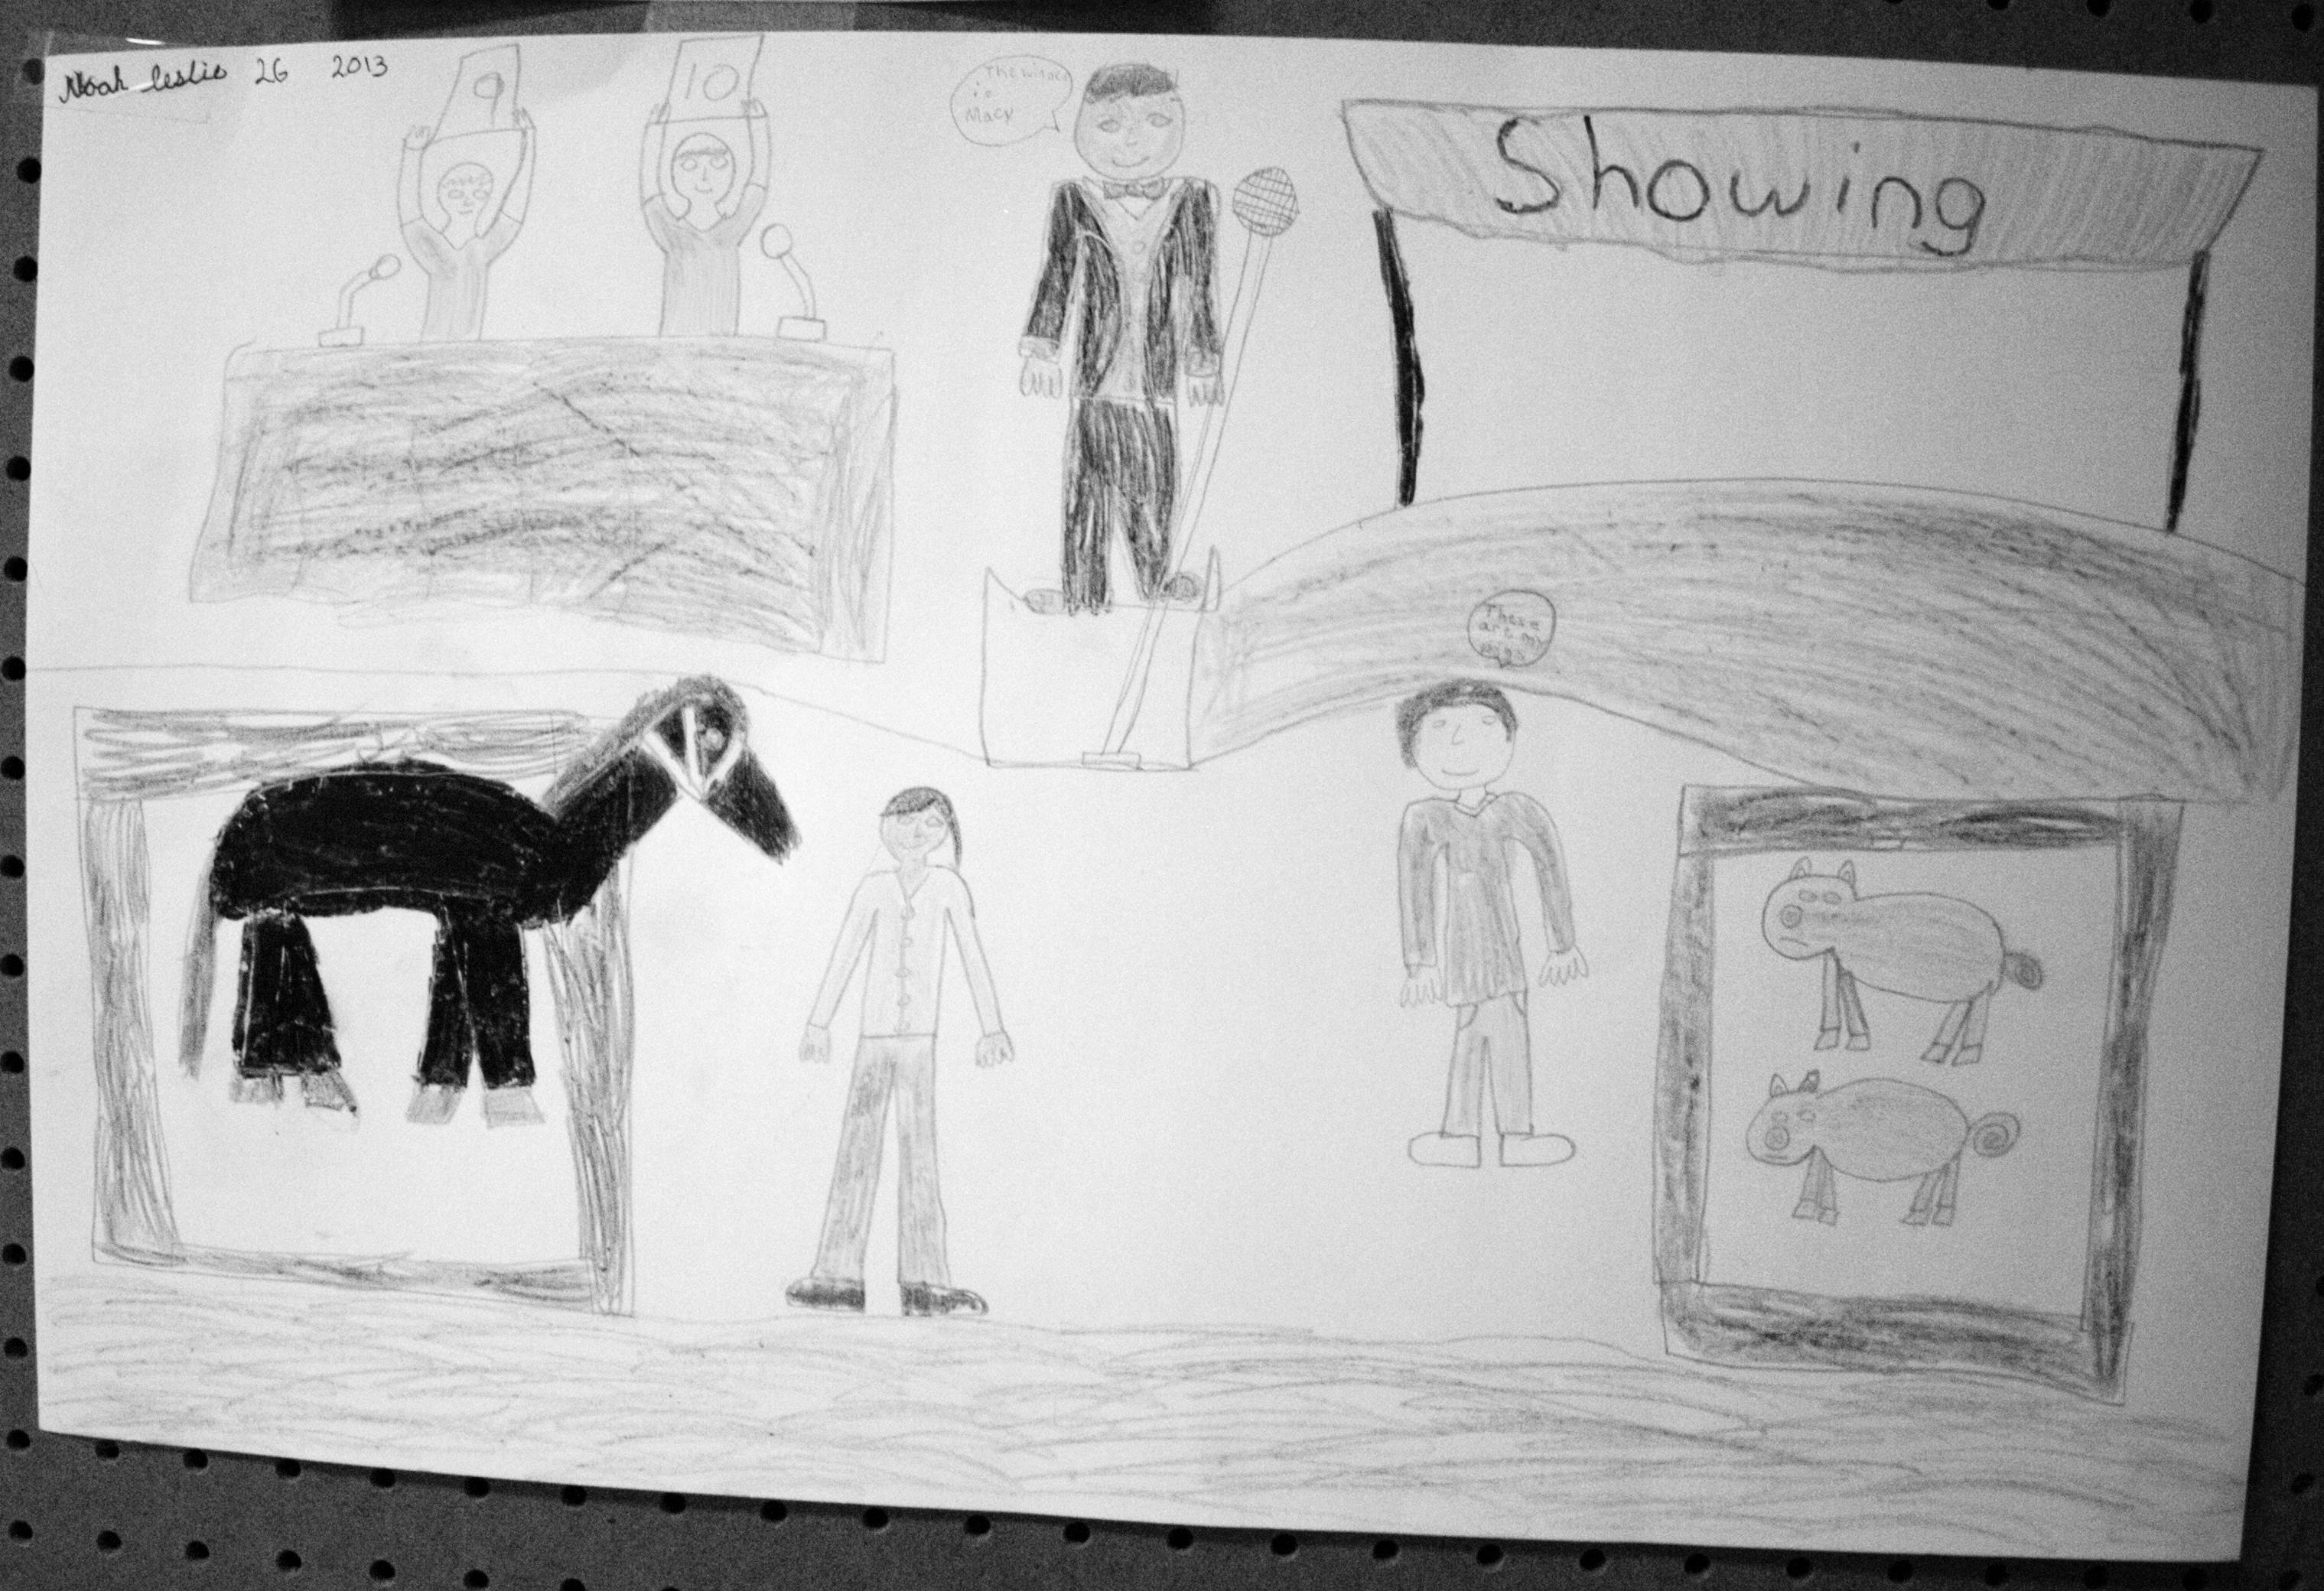 Noah leslie 26 2013
9
10
The winner
is
Macy
Showing
These
are my
pigs